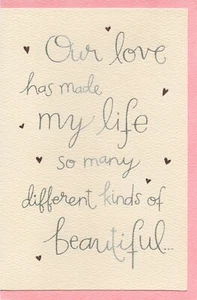 Our love
has made
my life
so many
different kinds of
beautiful...